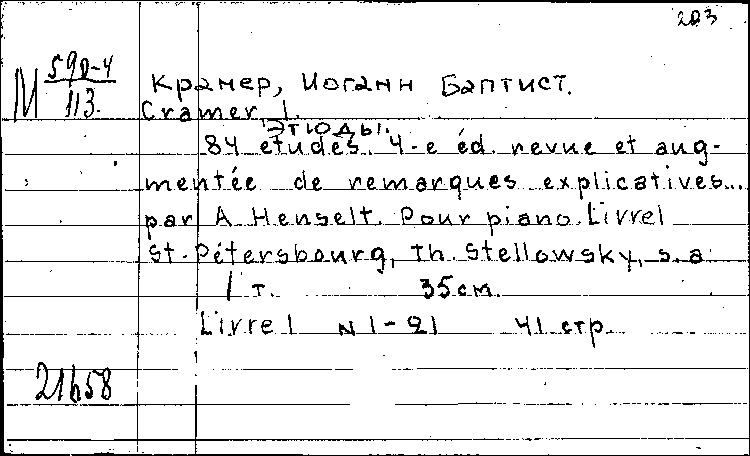 203
М 590-4
113.
Крамер, Иоганн Баптист.
Cramer, I.
Этюды.
84 études. 4-e éd. revue et aug-
mentée de remarques explicatives...
par A. Henselt. Pour piano. Livre 1
St.-Pétersbourg, Th. Stellowsky, s. a.
1 т. 35 см.
Livre 1 N 1-21 41 стр.
21658